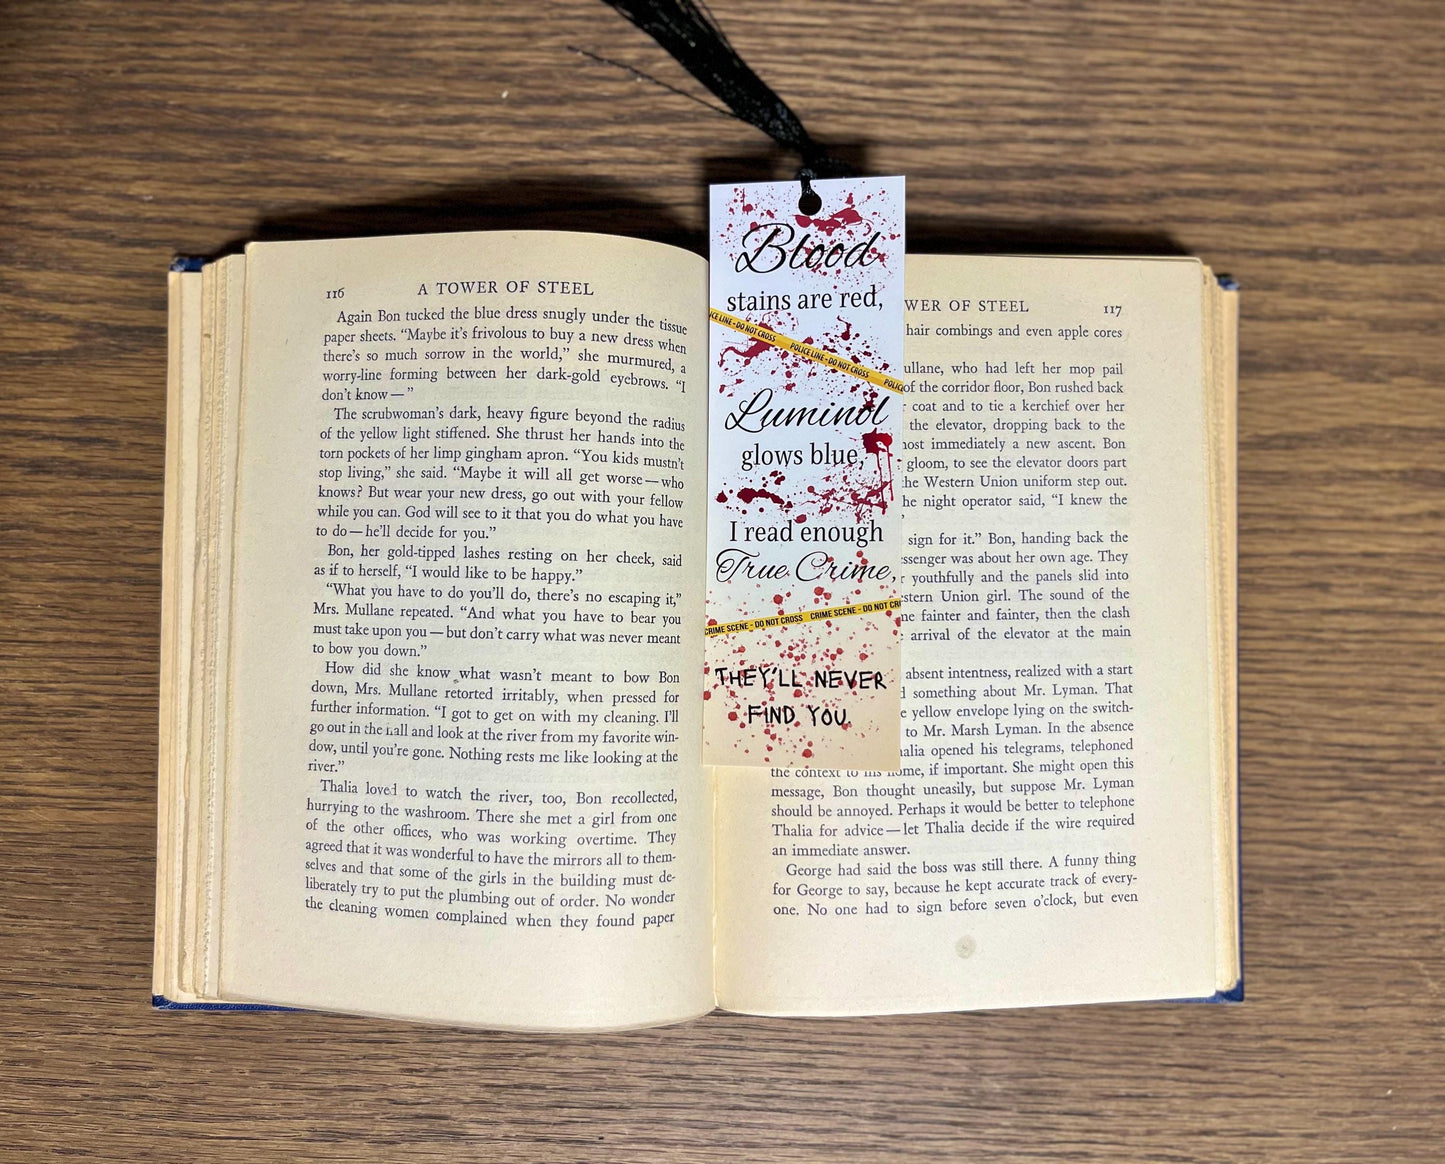 116
A TOWER OF STEEL
Again Bon tucked the blue dress snugly under the tissue
paper sheets. “Maybe it’s frivolous to buy a new dress when
there’s so much sorrow in the world,” she murmured, a
worry-line forming between her dark-gold eyebrows. “I
don’t know—”
The scrubwoman’s dark, heavy figure beyond the radius
of the yellow light stiffened. She thrust her hands into the
torn pockets of her limp gingham apron. “You kids mustn’t
stop living,” she said. “Maybe it will all get worse—who
knows? But wear your new dress, go out with your fellow
while you can. God will see to it that you do what you have
to do—he’ll decide for you.”
Bon, her gold-tipped lashes resting on her cheek, said
as if to herself, “I would like to be happy.”
“What you have to do you’ll do, there’s no escaping it,”
Mrs. Mullane repeated. “And what you have to bear you
must take upon you—but don’t carry what was never meant
to bow you down.”
How did she know what wasn’t meant to bow Bon
down, Mrs. Mullane retorted irritably, when pressed for
further information. “I got to get on with my cleaning. I’ll
go out in the hall and look at the river from my favorite win-
dow, until you’re gone. Nothing rests me like looking at the
river.”
Thalia loved to watch the river, too, Bon recollected,
hurrying to the washroom. There she met a girl from one
of the other offices, who was working overtime. They
agreed that it was wonderful to have the mirrors all to them-
selves and that some of the girls in the building must de-
liberately try to put the plumbing out of order. No wonder
the cleaning women complained when they found paper
Blood
stains are red,
POLICE LINE - DO NOT CROSS POLICE LINE - DO NOT CROSS
Luminol
glows blue,
I read enough
True Crime,
CRIME SCENE - DO NOT CROSS CRIME SCENE - DO NOT
THEY'LL NEVER
FIND YOU
WER OF STEEL
117
hair combings and even apple cores
ullane, who had left her mop pail
of the corridor floor, Bon rushed back
coat and to tie a kerchief over her
the elevator, dropping back to the
ost immediately a new ascent. Bon
gloom, to see the elevator doors part
he Western Union uniform step out.
he night operator said, “I knew the
sign for it.” Bon, handing back the
ssenger was about her own age. They
youthfully and the panels slid into
stern Union girl. The sound of the
ne fainter and fainter, then the clash
arrival of the elevator at the main
absent intentness, realized with a start
something about Mr. Lyman. That
e yellow envelope lying on the switch-
to Mr. Marsh Lyman. In the absence
alia opened his telegrams, telephoned
the context to his home, if important. She might open this
message, Bon thought uneasily, but suppose Mr. Lyman
should be annoyed. Perhaps it would be better to telephone
Thalia for advice—let Thalia decide if the wire required
an immediate answer.
George had said the boss was still there. A funny thing
for George to say, because he kept accurate track of every-
one. No one had to sign before seven o’clock, but even